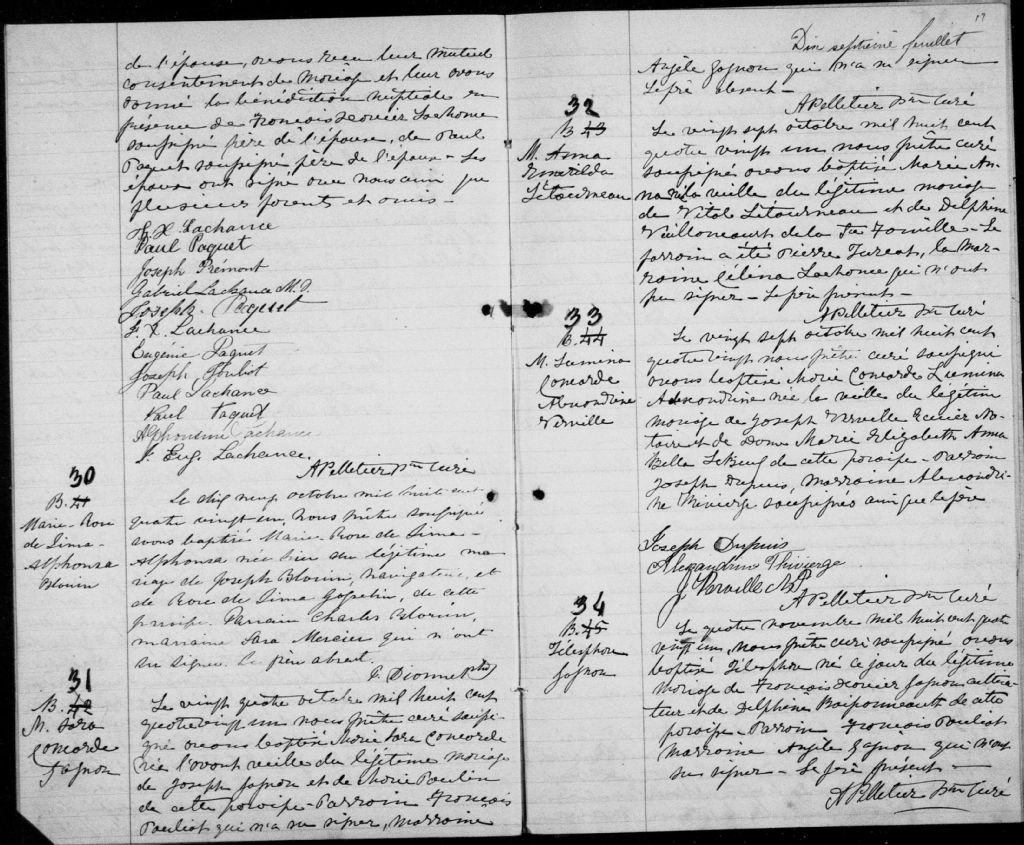 de l'épouse, avons reçu leur mutuel
consentement de mariage et leur avons
donné la bénédiction nuptiale en
présence de François Xavier Lachance
soussigné père de l'épouse, de Paul
Paquet soussigné père de l'époux - Les
époux ont signé avec nous ainsi que
plusieurs parents et amis -
F. X. Lachance
Paul Paquet
Joseph Prémont
Gabriel Lachance M.D.
Joseph Paquet
F. X. Lachance
Eugénie Paquet
Joseph Pouliot
Paul Lachance
Paul Paquet
Alphonsine Lachance
J. Eug. Lachance
A Pelletier Ptre Curé
30
B. 41
Marie Rose
de Lima
Alphonsa
Blouin
Le dix neuf octobre mil huit cent
quatre vingt un, Nous Prêtre soussigné
avons baptisé Marie Rose de Lima
Alphonsa née hier du légitime ma
riage de Joseph Blouin, navigateur, et
de Rose de Lima Gosselin, de cette
paroisse. Parrain Charles Blouin,
marraine Sara Mercier qui n'ont
su signer. Le père absent.
Dionne ptre
31
B. 42
M. Sara
Concorde
Gagnon
Le vingt quatre octobre mil huit cent
quatre vingt un nous Prêtre curé soussi
gné avons baptisé Marie Sara Concorde
née l'avant veille du légitime mariage
de Joseph Gagnon et de Marie Poulin
de cette paroisse - Parrain François
Pouliot qui n'a su signer, Marraine
17
Dix septième feuillet
Angèle Gagnon qui n'a su signer
Le père absent -
A Pelletier Ptre Curé
32
B. 43
M. Anna
Emérilda
Létourneau
Le vingt sept octobre mil huit cent
quatre vingt un nous Prêtre curé
soussigné avons baptisé Marie An
na née la veille du légitime mariage
de Vital Létourneau et de Delphine
de la Ste Famille - Le
parrain a été Pierre Turcot, la mar
raine Célina Lachance qui n'ont
su signer - Le père présent -
A Pelletier Ptre Curé
33
B. 44
M. Lumina
Concorde
Alexandrine
Verville
Le vingt sept octobre mil huit cent
quatre vingt nous Prêtre curé soussigné
avons baptisé Marie Concorde Lumina
Alexandrine née la veille du légitime
mariage de Joseph Verville Ecuier No
taire et de Dame Marie Elizabeth Anna
Bella LeBeuf de cette paroisse - Parrain
Joseph Dupuis, Marraine Alexandri
ne Thivierge soussignés ainsi que le père
Joseph Dupuis
Alexandrine Thivierge
J Verville N.P.
A Pelletier Ptre Curé
34
B. 45
Télesphore
Gagnon
Le quatre novembre mil huit cent quatre
vingt un, nous Prêtre curé soussigné avons
baptisé Télesphore né ce jour du légitime
mariage de François Xavier Gagnon cultiva
teur et de Delphine de cette
paroisse - Parrain François Pouliot
Marraine Angèle Gagnon qui n'ont
su signer - Le père présent -
A Pelletier Ptre Curé